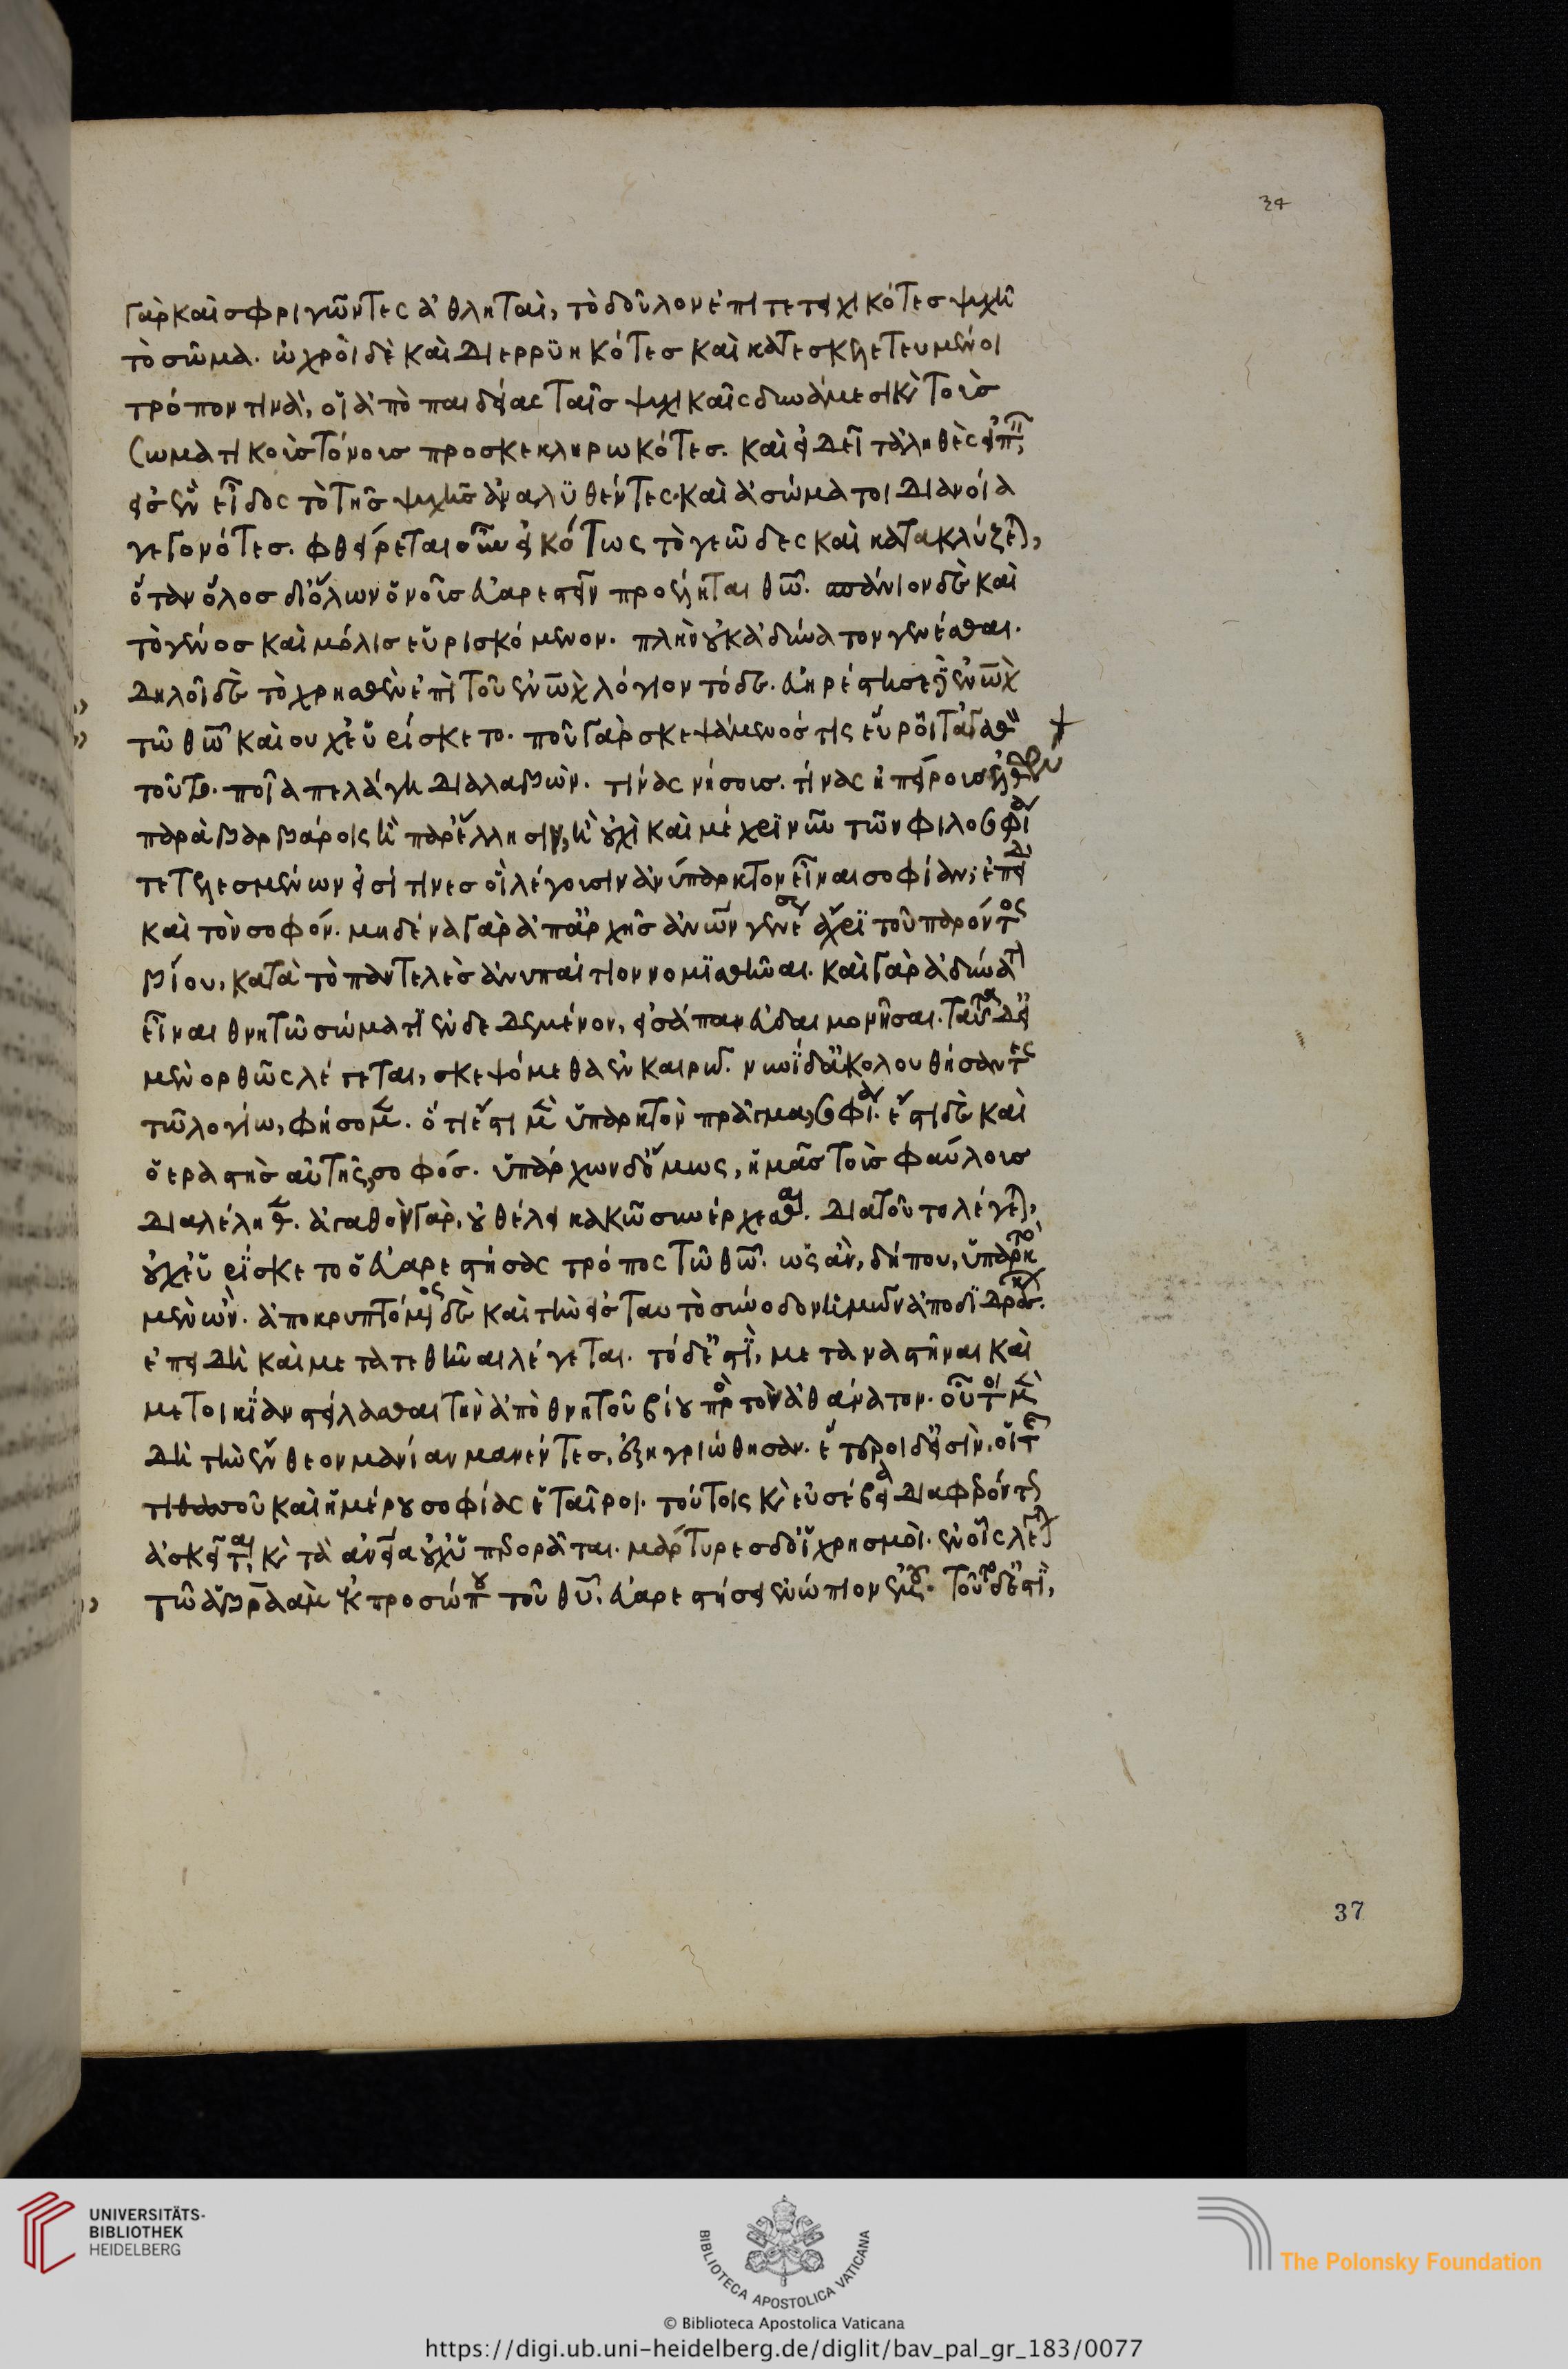 34
γὰρ καὶ σφριγῶντες ἀθληταὶ, τὸ δοῦλον ἐπιτετειχικότες ψυχῆ
τὸ σῶμα. ὠχροὶ δὲ καὶ διερρϋηκότες καὶ κατεσκελετευμένοι
τρόπον τινὰ, οἱ ἀπὸ παιδείας ταῖς ψυχικαῖς δυνάμεσι καὶ τοὺς
σωματικοὺς τόνους προσκεκληρωκότες. καὶ εἰ δεῖ τἀληθὲς εἰπεῖν,
εἰς ἓν εἶδος τὸ τῆς ψυχῆς ἀναλϋθέντες· καὶ ἀσώματοι διανοία
γεγονότες. φθείρεται οὖν εἰκότως τὸ γεῶδες καὶ κατακλύζεται,
ὅταν ὅλος διόλων ὁ νοῦς εὐαρεστεῖν προέληται θῶ. σπάνιον δὲ καὶ
τὸ γένος καὶ μόλις εὑρισκόμενον. πλὴν οὐκ ἀδύνατον γενέσθαι.
δηλοῖ δὲ τὸ χρησθὲν ἐπὶ τοῦ ἐνὼχ λόγιον τόδε. εὐηρέστησε δὲ ἐνὼχ
τῶ θῶ καὶ ουχ εὑρίσκετο. ποῦ γὰρ σκεψάμενος τίς εὕροι τἀγαθὸν
τοῦτο. ποῖα πελάγη διαλαβὼν. τίνας νήσους. τίνας ἠπείρους ἐπελθὼν
παρὰ βαρβάροις ἢ παρ' ἕλλησιν, ἢ οὐχὶ καὶ μέχρι νῦν τῶν φιλοσοφία
τετελεσμένων εἰσί τινες οἳ λέγουσιν ἀνύπαρκτον εἶναι σοφίαν, ἐπειδὴ
καὶ τὸν σοφόν. μηδένα γὰρ ἀπ' ἀρχῆς ἀνων γενέσεως ἄχρι τοῦ παρόντος
βίου, κατὰ τὸ παντελὲς ἀνυπαίτιον νομϊσθῆναι. καὶ γὰρ ἀδύνατον
εἶναι θνητῶ σώματι ἐνδεδεμένον, εἰσάπαν εὐδαιμονῆσαι. ταῦτα δ' εἰ
μὲν ορθῶς λέγεται, σκεψόμεθα ἐν καιρῶ. νυνὶ δ' ἀκολουθήσαντες
τῶ λογίω, φήσομεν. ὅτι ἔστι μὲν ὑπαρκτὸν πρᾶγμα, σοφία. ἔστι δὲ καὶ
ὁ εραστὴς αὐτῆς, σοφός. ὑπάρχων δ' ὅμως, ἡμᾶς τοὺς φαύλους
διαλέληθεν. ἀγαθὸν γὰρ, οὐ θέλει κακῶ συνέρχεσθαι. διατοῦτο λέγεται,
οὐχ εὑρίσκετο ὁ εὐαρεστήσας τρόπος τῶ θῶ. ὡς ἂν, δήπου, ὑπαρκτὸς
μὲν ὢν. ἀποκρυπτόμενος δὲ καὶ τὴν εἰς ταυτὸ σύνοδον ἡμῶν ἀποδϊδράσκων.
ἐπειδὴ καὶ μετατεθῆναι λέγεται. τόδέ ἐστι, μεταναστῆναι καὶ
μετοικίαν στείλασθαι τὴν ἀπὸ θνητοῦ βίου πρὸς τὸν ἀθάνατον. οὗτοι μὲν
δὴ τὴν ἔνθεον μανίαν μανέντες, ἐξηγριώθησαν. ἕτεροι δ' εἰσὶν, οἱ τῆς
τιθασοῦ καὶ ἡμέρου σοφίας ἑταῖροι. τούτοις καὶ εὐσέβεια διαφερόντως
ἀσκεῖται, καὶ τὰ ἀνθρώπεια οὐχ ὑπερορᾶται. μάρτυρες δ' οἱ χρησμοὶ. ἐν οἷς λέγεται
τῶ ἀβραὰμ ἐκ προσώπου τοῦ θυ, εὐαρεστήσει ἐνώπιον ἐμοῦ. τοῦτο δέ ἐστι,
37
UNIVERSITÄTS-
BIBLIOTHEK
HEIDELBERG
BIBLIOTECA APOSTOLICA VATICANA
The Polonsky Foundation
© Biblioteca Apostolica Vaticana
https://digi.ub.uni-heidelberg.de/diglit/bav_pal_gr_183/0077